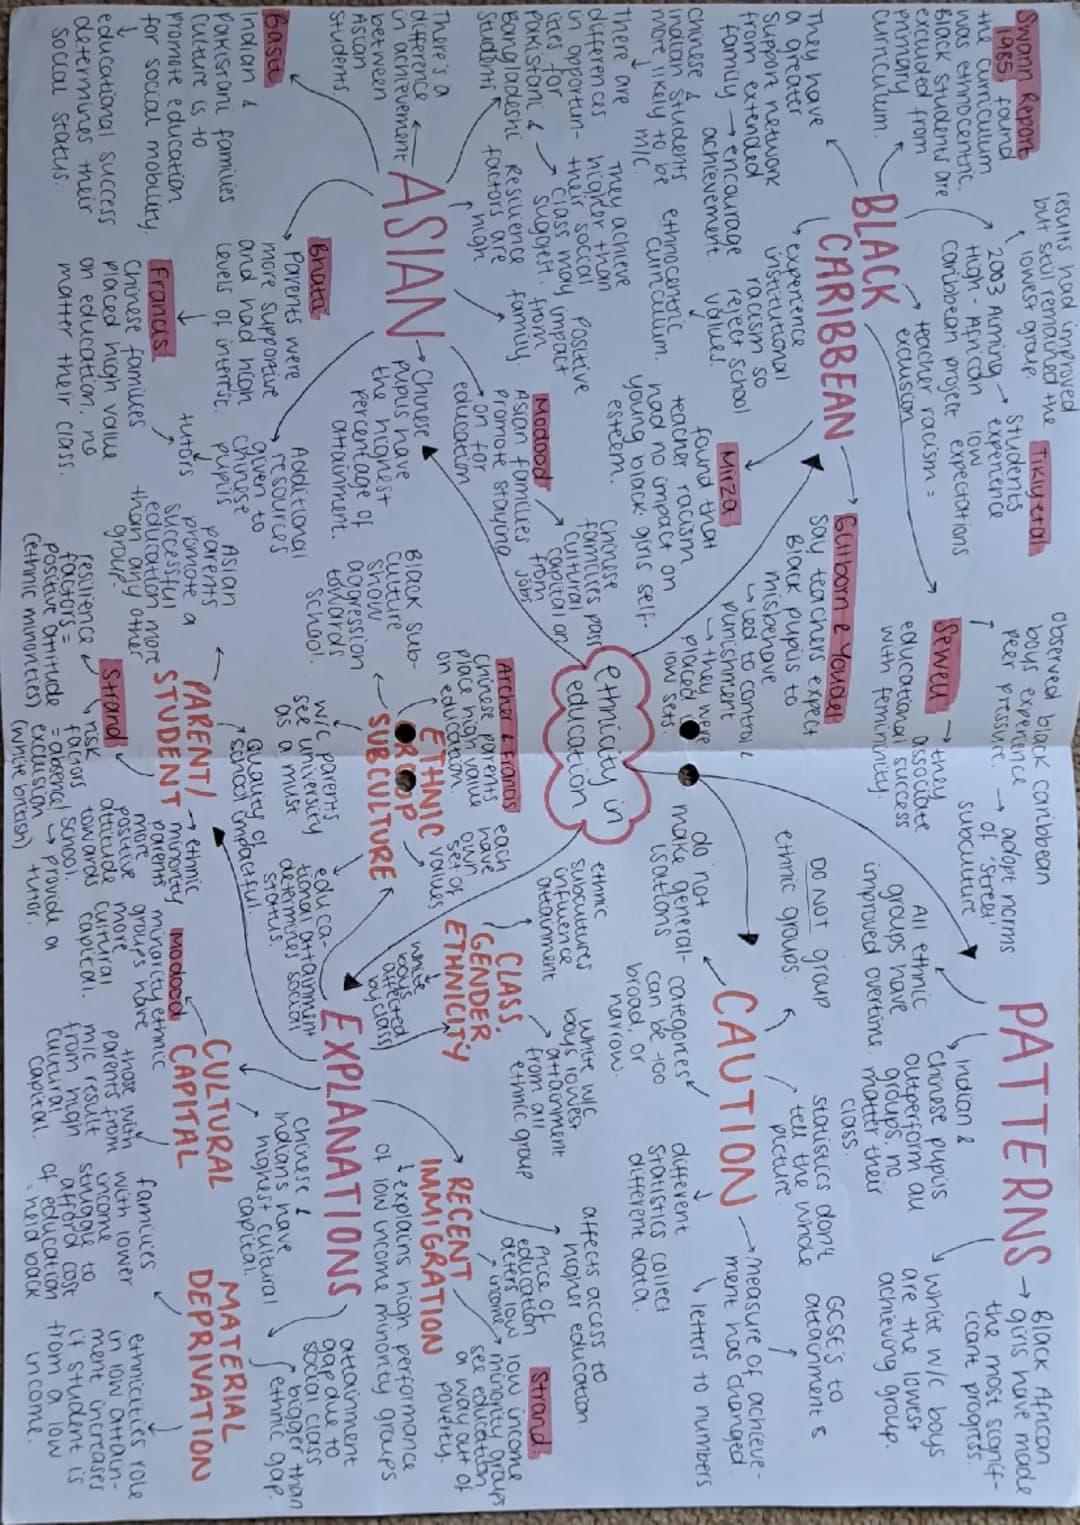 ethnicity in
education
BLACK
CARIBBEAN
Swann Report
1985 found
the curriculum
was ethnocentric.
Black students are
excluded from
primary
curriculum.
2003 Aiming
High - African
Caribbean project
results had improved
but still remained the
lowest group.
Tikly et al
Students
experience
low
expectations
teacher racism =
exclusion
They have
a greater
support network
from extended
family → encourage
achievement.
experience
institutional
racism so
reject school
values.
ethnocentric
curriculum.
Mirza
found that
teacher racism
had no impact on
young black girls self-
esteem.
Gillborn & Youdell
say teachers expect
Black pupils to
misbehave
↳ led to control &
punishment
→ they were
placed in
low sets.
Sewell → they
associate
educational success
with femininity.
observed black caribbean
boys experience
peer pressure. → adopt norms
of 'street'
subculture
ASIAN
There's a
difference
in achievement
between
Asian
students
Chinese &
Indian students
more likely to be
m/c.
There are
differences
in opportun-
ities for
Pakistani &
Bangladeshi
students
They achieve
higher than
their social
class may
suggest.
Resilience
factors are
high.
Positive
impact
from
family.
Basit
Indian &
Pakistani families
culture is to
promote education
for social mobility.
educational success
determines their
social status.
Bhatti
Parents were
more supportive
and had high
levels of interest.
Francis
Chinese families
placed high value
on education, no
matter their class.
Additional
resources
given to
chinese
pupils
tutors
→ Chinese
pupils have
the highest
percentage of
attainment.
Modood
Asian families
promote staying
on for
education
Chinese
families pass
cultural
capital on
from
jobs
PATTERNS → Black African
girls have made
the most signif-
icant progress.
Indian &
Chinese pupils
outperform all
groups, no
matter their
class.
White w/c boys
are the lowest
achieving group.
All ethnic
groups have
improved overtime.
CAUTION → measure of achieve-
ment has changed.
↳ letters to numbers
GCSE's to
attainment 8
statistics don't
tell the whole
picture
DO NOT group
ethnic groups.
do not
make general-
isations
categories
can be too
broad or
narrow.
different
statistics collect
different data.
EXPLANATIONS
CLASS,
GENDER,
ETHNICITY
ethnic
subcultures
influence
attainment
White w/c
boys lowest
attainment
from all
ethnic group
white
boys
affected
by class
ETHNIC
GROUP
SUBCULTURE
Archer & Francis
Chinese parents
place high value
on education.
each
have
own
set of
values
Black sub-
culture
show
aggression
towards
school.
w/c parents
see university
as a must.
educa-
tional attainment
determines social
status.
Quality of
school impactful.
PARENT/
STUDENT → ethnic
minority
parents
more
positive
attitude
towards
school.
Asian
parents
promote a
successful
education more
than any other
group.
Strand
resilience
factors =
positive attitude
(ethnic minorities)
risk
factors
= absence/
exclusion
(white british)
→ provide a
tutor.
CULTURAL
CAPITAL
Modood
minority ethnic
groups have
more
cultural
capital.
those with
parents from
m/c result
from high
cultural
capital.
Chinese &
Indians have
highest cultural
capital.
MATERIAL
DEPRIVATION
families
with lower
income
struggle to
afford cost
of education
= held back
ethnicities role
in low attain-
ment increases
if student is
from a low
income.
attainment
gap due to
social class
bigger than
ethnic gap.
RECENT
IMMIGRATION
explains high performance
of low income minority groups
Strand
low income
minority groups
see education
a way out of
poverty.
Price of
education
deters low
income
affects access to
higher education